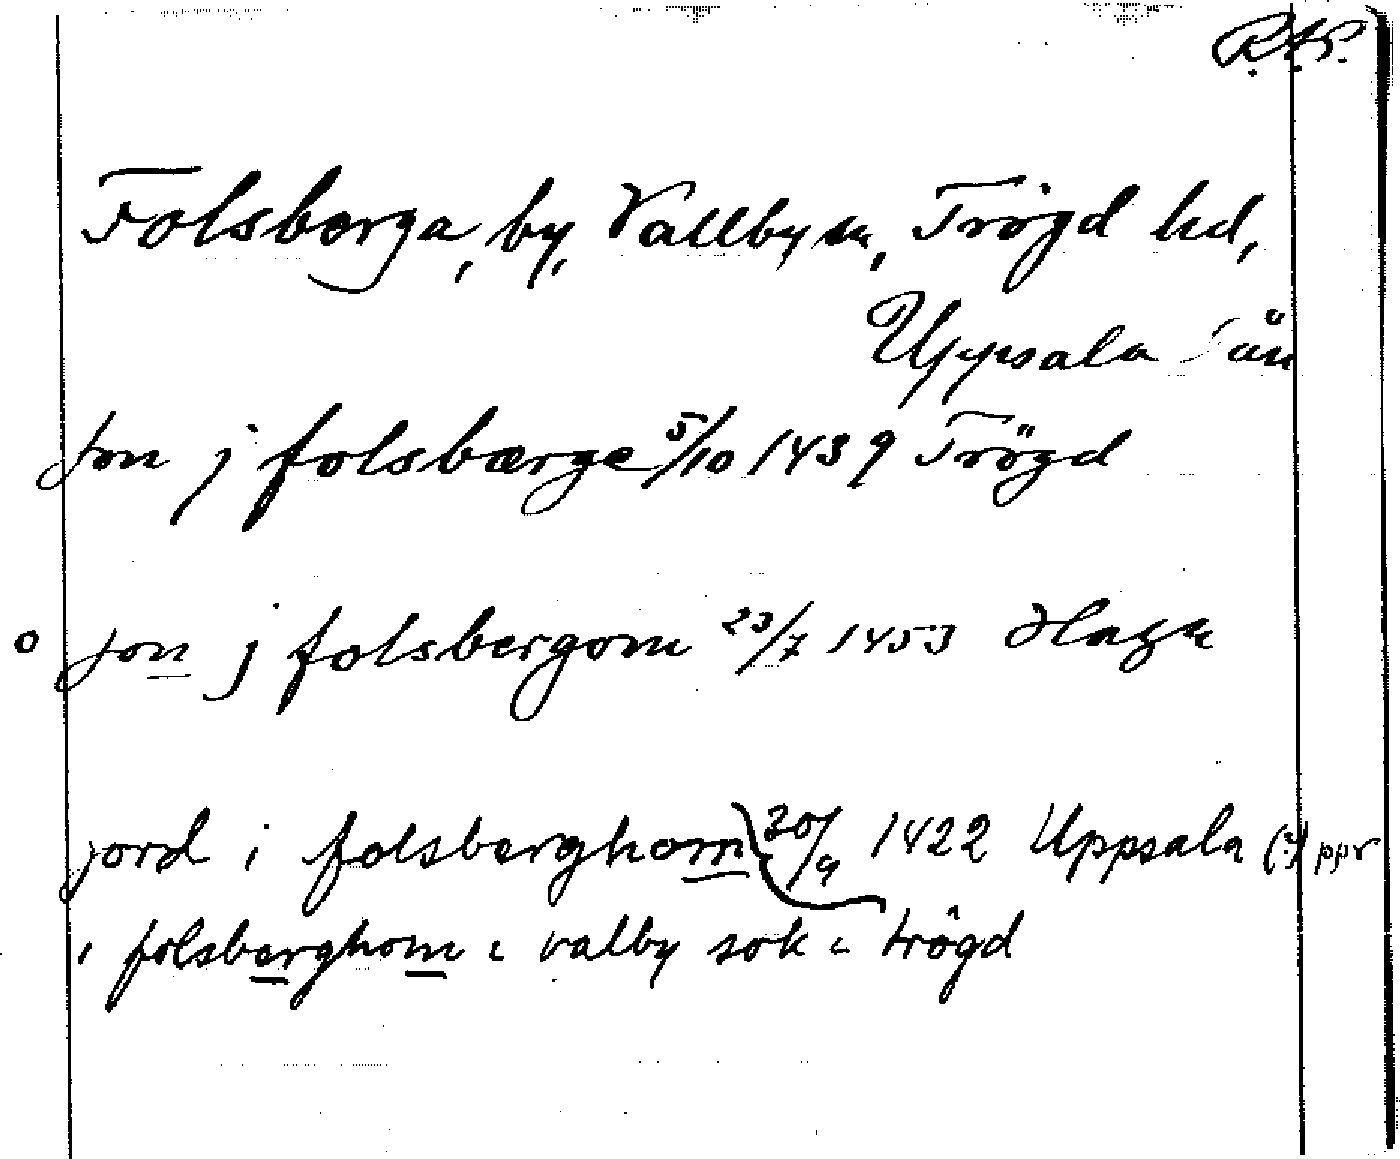 R.A.P.
Folsberga, by, Vallby sn, Trögd hd,
Uppsala län
Jon j folsbærge 5/10 1439 Trögd
o Jon j folsbergom 23/7 1453 Haga
jord i folsberghom 20/9 1422 Uppsala (?) ppr
i folsberghom i valby sok i trögd